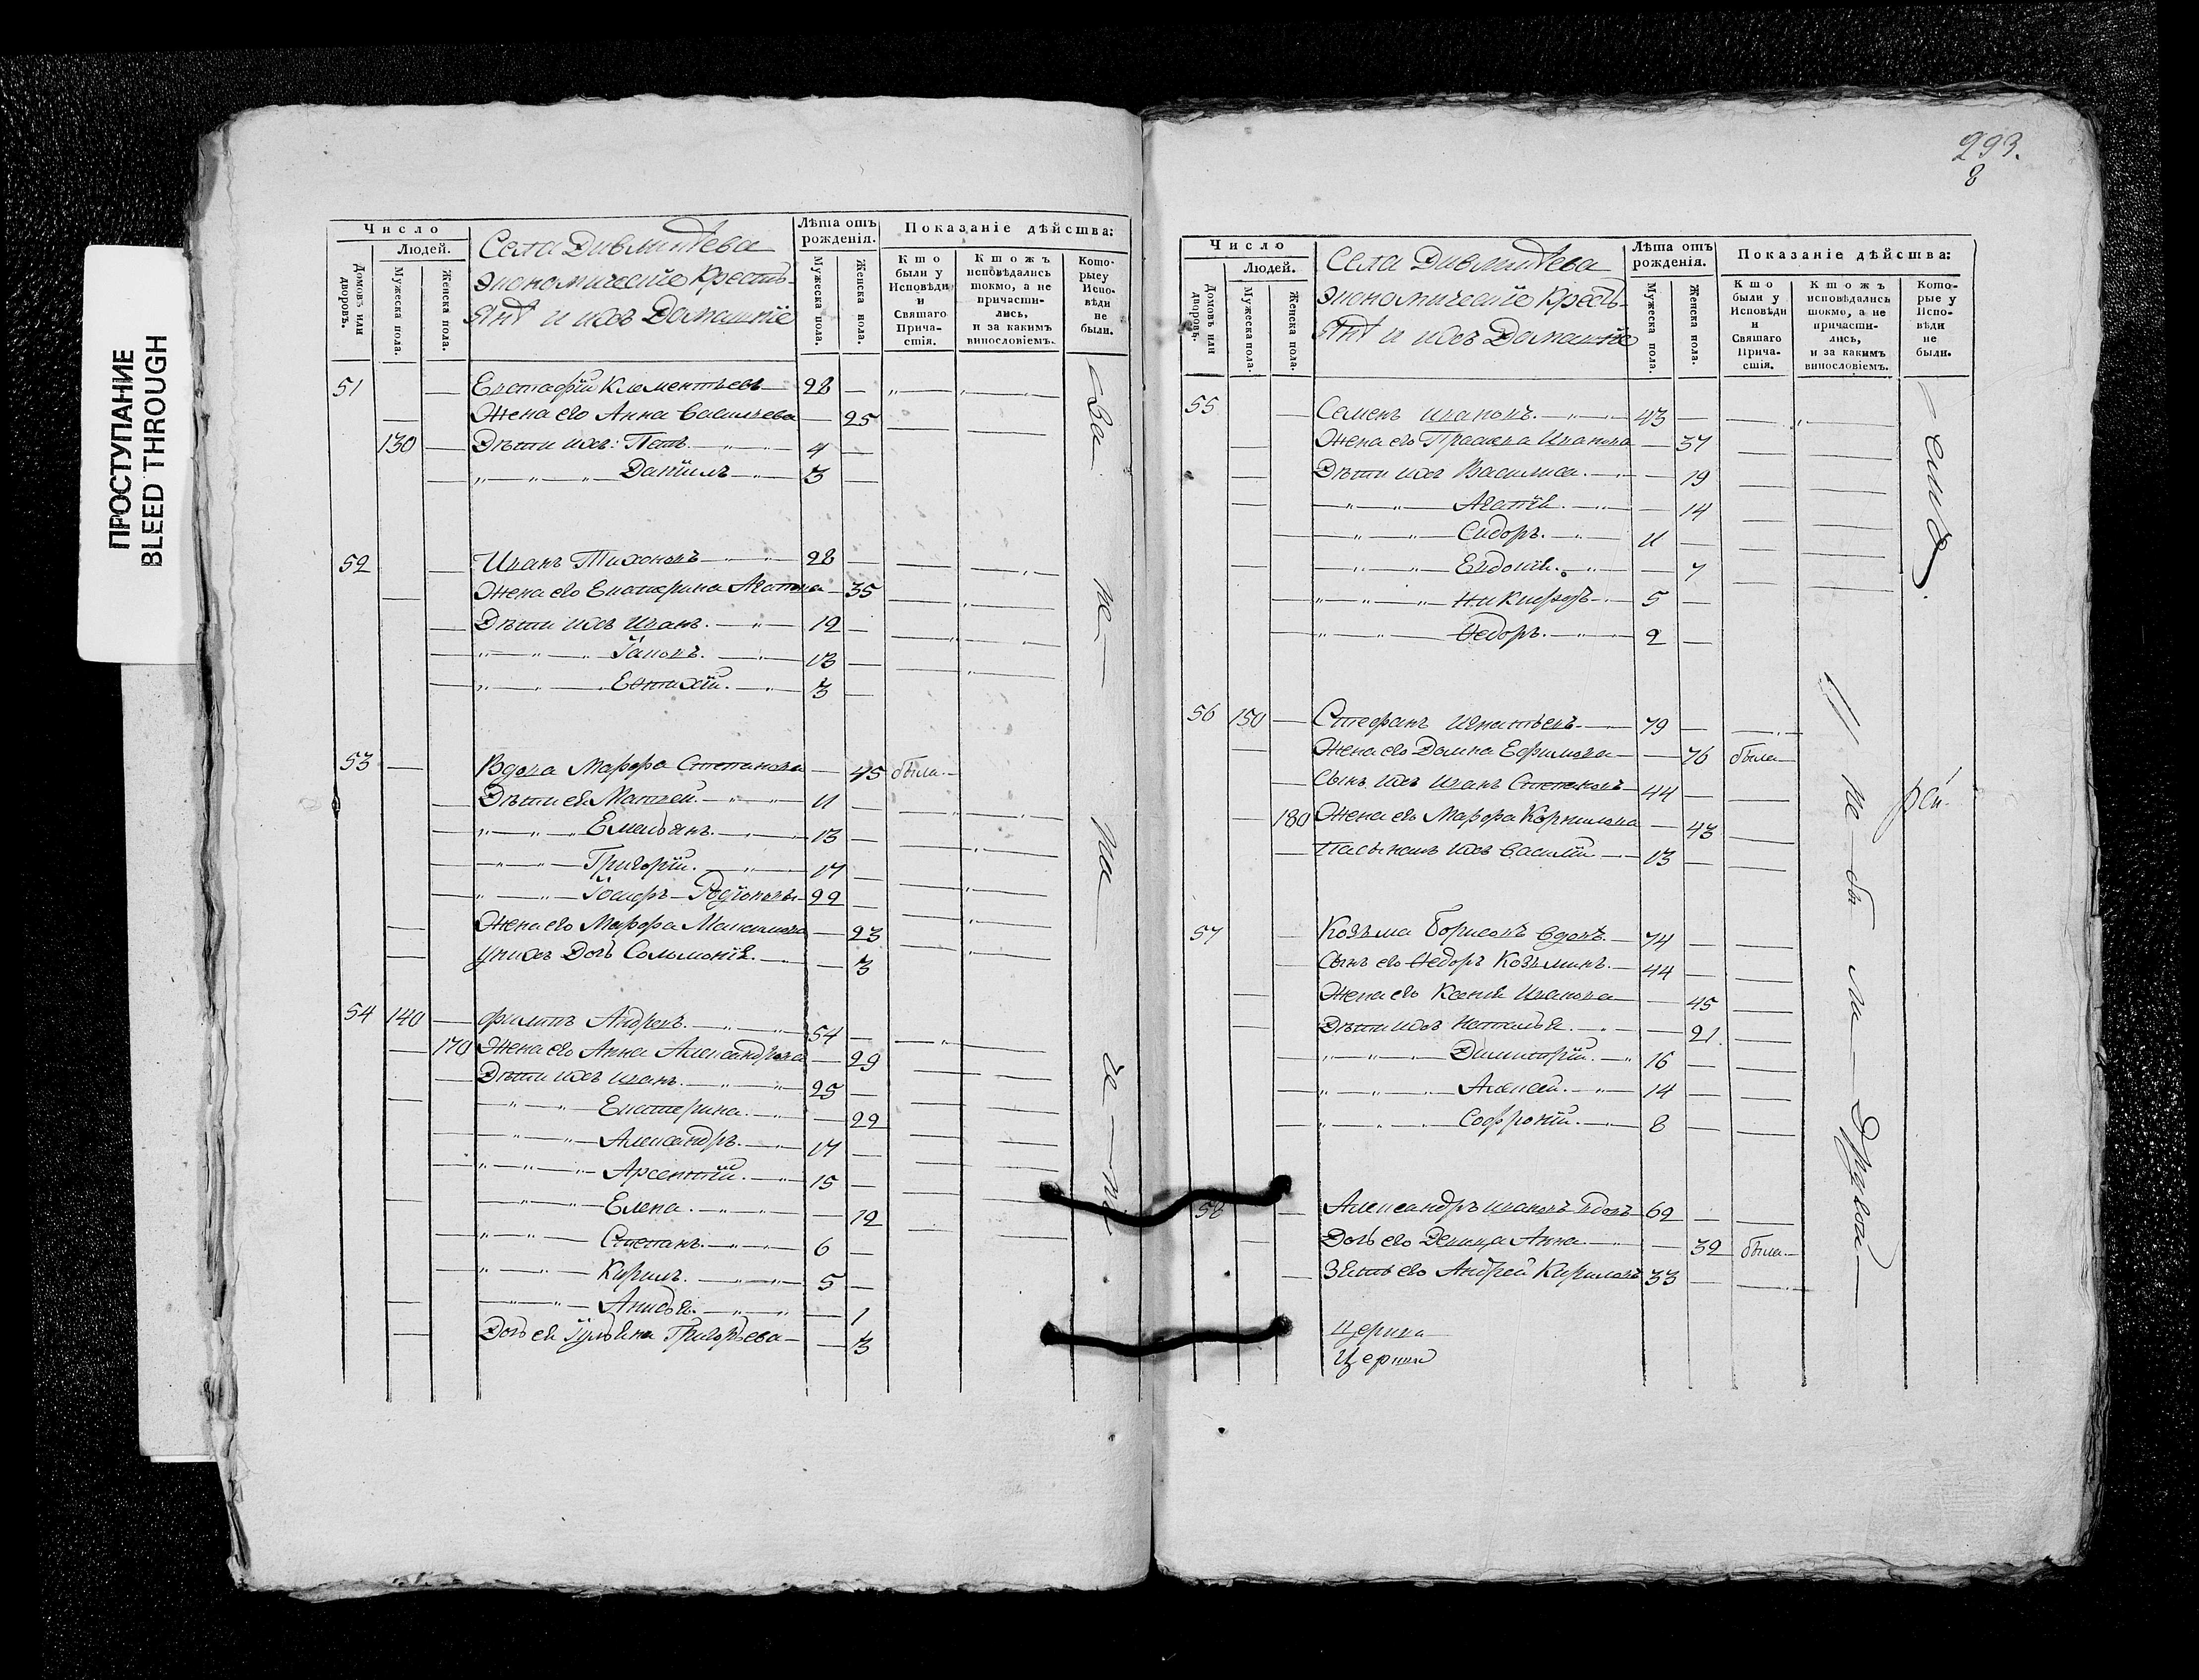 ПРОСТУПАНИЕ
BLEED THROUGH
Число
Людей.
Домовъ или дворовъ.
Мужеска пола.
Женска пола.
Села
экономическïе Кресть-
янѣ и ихъ Домашнïе
Лѣта отъ рожденïя.
Мужеска пола.
Женска пола.
Показанïе дѣйства:
Кто были у Исповѣди и Святаго Прича-стïя.
Ктожъ исповѣдались токмо, а не причасти-лись, и за какимъ винословïемъ.
Кото-рые у Испо-вѣди не были.
51 Евстафïй Клементьевъ 28
Жена его Анна Васильева 25
130 Дѣти ихъ: Петръ 4
Данïилъ 3
52 Иванъ Тихоновъ 28
Жена его Екатерина 35
Дѣти ихъ Иванъ. 12
Iаковъ. 13
Евтихïй. 3
53 Вдова Марфа Степанова 45 была
Дѣти ея Матвей. 11
Емельянъ. 13
Григорïй. 17
Iосифъ Родïоновъ 22
Жена его Марфа Максимова 23
У нихъ Дочь Соломонïя. 3
54 140 Филипъ Андреевъ. 54
170 Жена его Анна Александрова 29
Дѣти ихъ Иванъ. 25
Екатерина. 22
Александръ. 17
Арсентïй. 15
Елена. 12
Степанъ. 6
Кирилъ. 5
Анисья. 1
Дочь ея Iульяна Григорьева 3
293.
8
Число
Людей.
Домовъ или дворовъ.
Мужеска пола.
Женска пола.
Села
экономическïе Кресть-
янѣ и ихъ Домашнïе
Лѣта отъ рожденïя.
Мужеска пола.
Женска пола.
Показанïе дѣйства:
Кто были у Исповѣди и Святаго Прича-стïя.
Ктожъ исповѣдались токмо, а не причасти-лись, и за какимъ винословïемъ.
Кото-рые у Испо-вѣди не были.
55 Семенъ Ивановъ. 43
Жена его Праскева Иванова 37
Дѣти ихъ Василиса. 19
Агапïя. 14
Сидоръ. 11
Евдокïя. 7
Никифоръ 5
Ѳедоръ. 2
56 150 Стефанъ Игнатьевъ. 79
Жена его Домна Ефимова 76 была
Сынъ ихъ Иванъ Степановъ 44
180 Жена его Марфа Корнилова 43
Пасынокъ ихъ Василïй 13
57 Козьма Борисовъ вдовъ. 74
Сынъ его Ѳедоръ Козьминъ. 44
Жена его Ксенïя Иванова 45
Дѣти ихъ Наталья. 21.
Димитрïй. 16
Алексей. 14
Софронïй. 8
58 Александръ Ивановъ вдовъ 62
Дочь его Девица Анна 32 была
Зять его Андрей Кириловъ 33